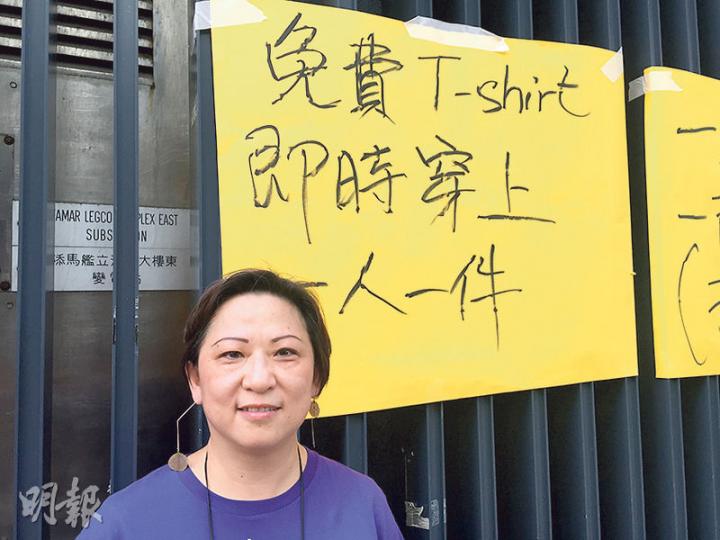 免費 T-shirt
即時穿上
一人一件
AMAR LEGCO
PLEX EAST
SUBS
ON
添馬艦立
大樓東
變
明報
一
一
(